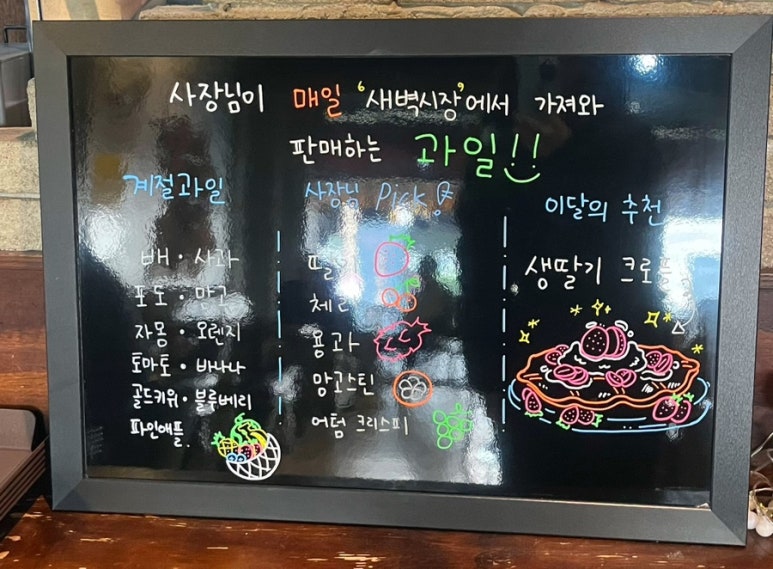 사장님이 매일 '새벽시장'에서 가져와
판매하는 과일!!
계절과일
배 · 사과
포도 · 망고
자몽 · 오렌지
토마토 · 바나나
골드키위 · 블루베리
파인애플
사장님 Pick!
체리
용과
망고스틴
어텀 크리스피
이달의 추천
생딸기 크로플